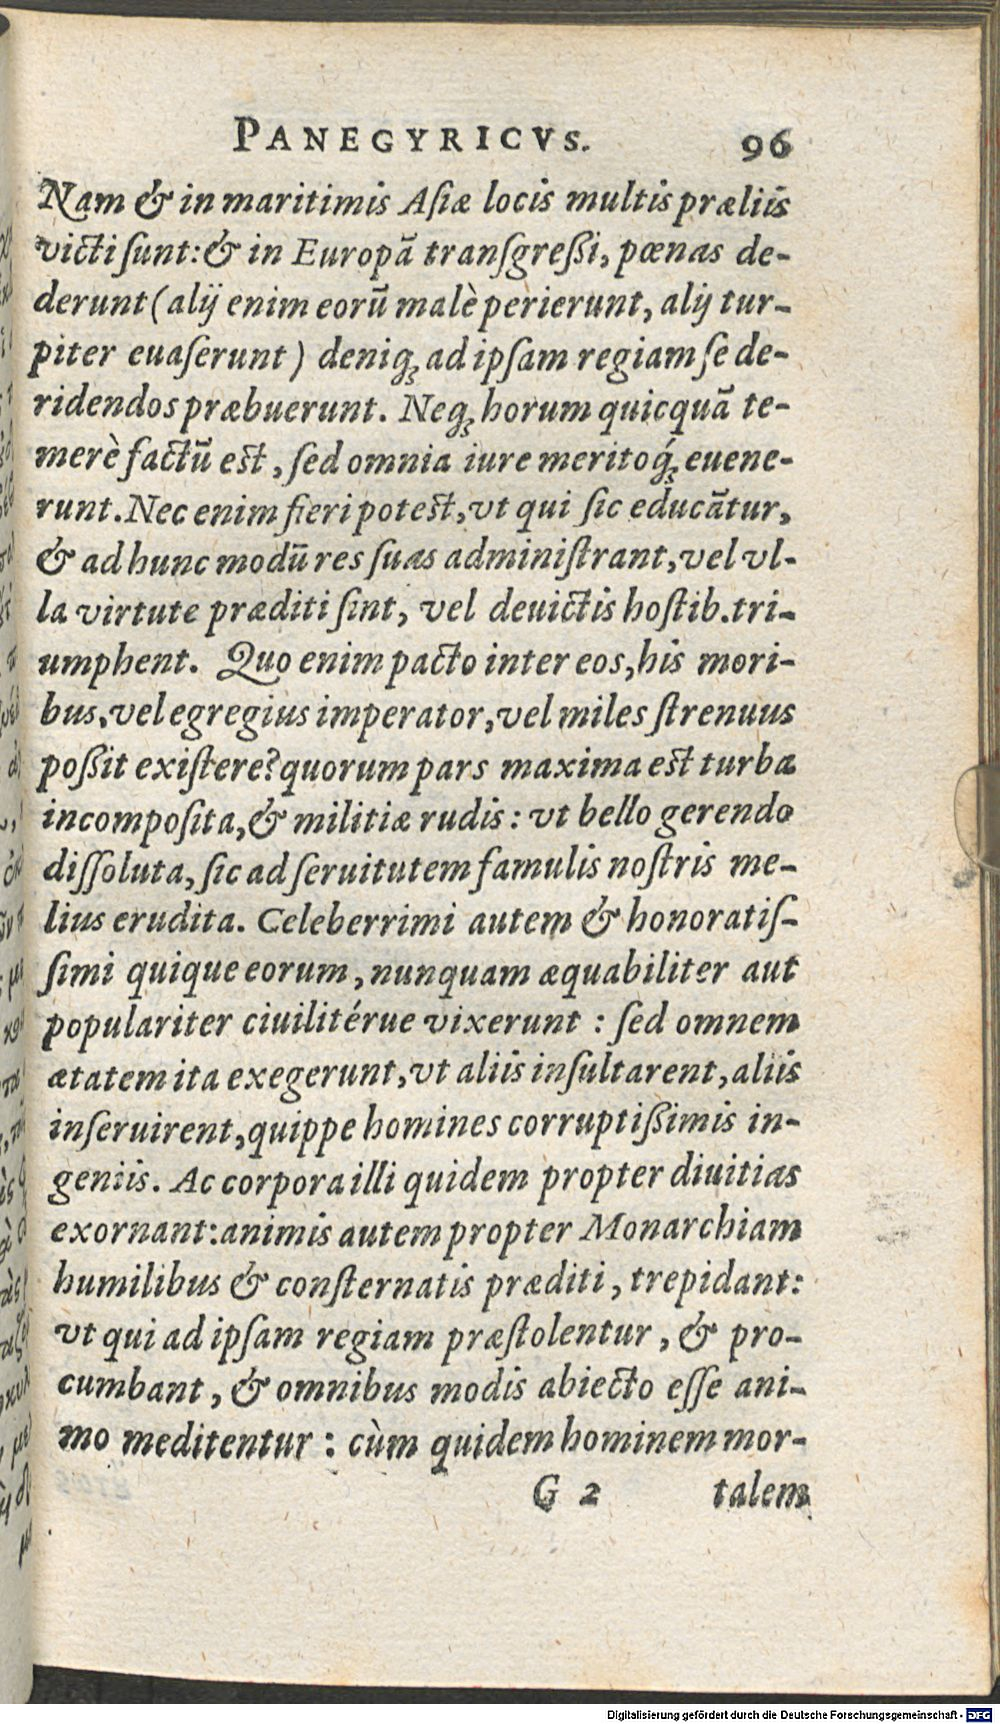 PANEGYRICVS. 96
Nam & in maritimis Aſiæ locis multis præliis
victi ſunt: & in Europā tranſgreßi, pœnas de-
derunt (alij enim eorū malè perierunt, alij tur-
piter euaſerunt) deniq; ad ipſam regiam ſe de-
ridendos præbuerunt. Neq; horum quicquā te-
merè factū est, ſed omnia iure meritoq́; euene-
runt. Nec enim fieri potest, vt qui ſic educātur,
& ad hunc modū res ſuas adminiſtrant, vel vl-
la virtute præditi ſint, vel deuictis hoſtib. tri-
umphent. Quo enim pacto inter eos, his mori-
bus, vel egregius imperator, vel miles ſtrenuus
poßit exiſtere? quorum pars maxima est turba
incompoſita, & militiæ rudis: vt bello gerendo
diſſoluta, ſic ad ſeruitutem famulis noſtris me-
lius erudita. Celeberrimi autem & honoratiſ-
ſimi quique eorum, nunquam æquabiliter aut
populariter ciuilitérue vixerunt: ſed omnem
ætatem ita exegerunt, vt aliis inſultarent, aliis
inſeruirent, quippe homines corruptißimis in-
geniis. Ac corpora illi quidem propter diuitias
exornant: animis autem propter Monarchiam
humilibus & conſternatis præditi, trepidant:
vt qui ad ipſam regiam præſtolentur, & pro-
cumbant, & omnibus modis abiecto eſſe ani-
mo meditentur: cùm quidem hominem mor-
G 2 talem
Digitalisierung gefördert durch die Deutsche Forschungsgemeinschaft - DFG